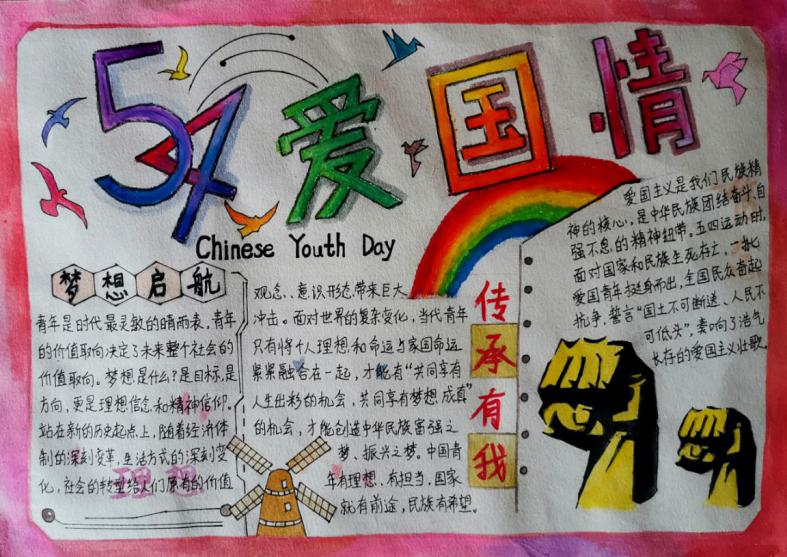 54爱国情
Chinese Youth Day
梦想启航
青年是时代最灵敏的晴雨表，青年
的价值取向决定了未来整个社会的
价值取向。梦想是什么？是目标，是
方向，更是理想信念和精神信仰。
站在新的历史起点上，随着经济体
制的深刻变革，生活方式的深刻变
化，社会的转型给人们原有的价值
理想
观念、意识形态带来巨大
冲击。面对世界的复杂变化，当代青年
只有将个人理想和命运与家国命运
紧紧融合在一起，才能有“共同享有
人生出彩的机会，共同享有梦想成真”
的机会，才能创造中华民族富强之
梦、振兴之梦。中国青
年有理想、有担当，国家
就有前途，民族有希望。
传承有我
爱国主义是我们民族精
神的核心，是中华民族团结奋斗、自
强不息的精神纽带。五四运动时，
面对国家和民族生死存亡，一批
爱国青年挺身而出，全国民众奋起
抗争，誓言“国土不可断送、人民不
可低头”，奏响了浩气
长存的爱国主义壮歌。